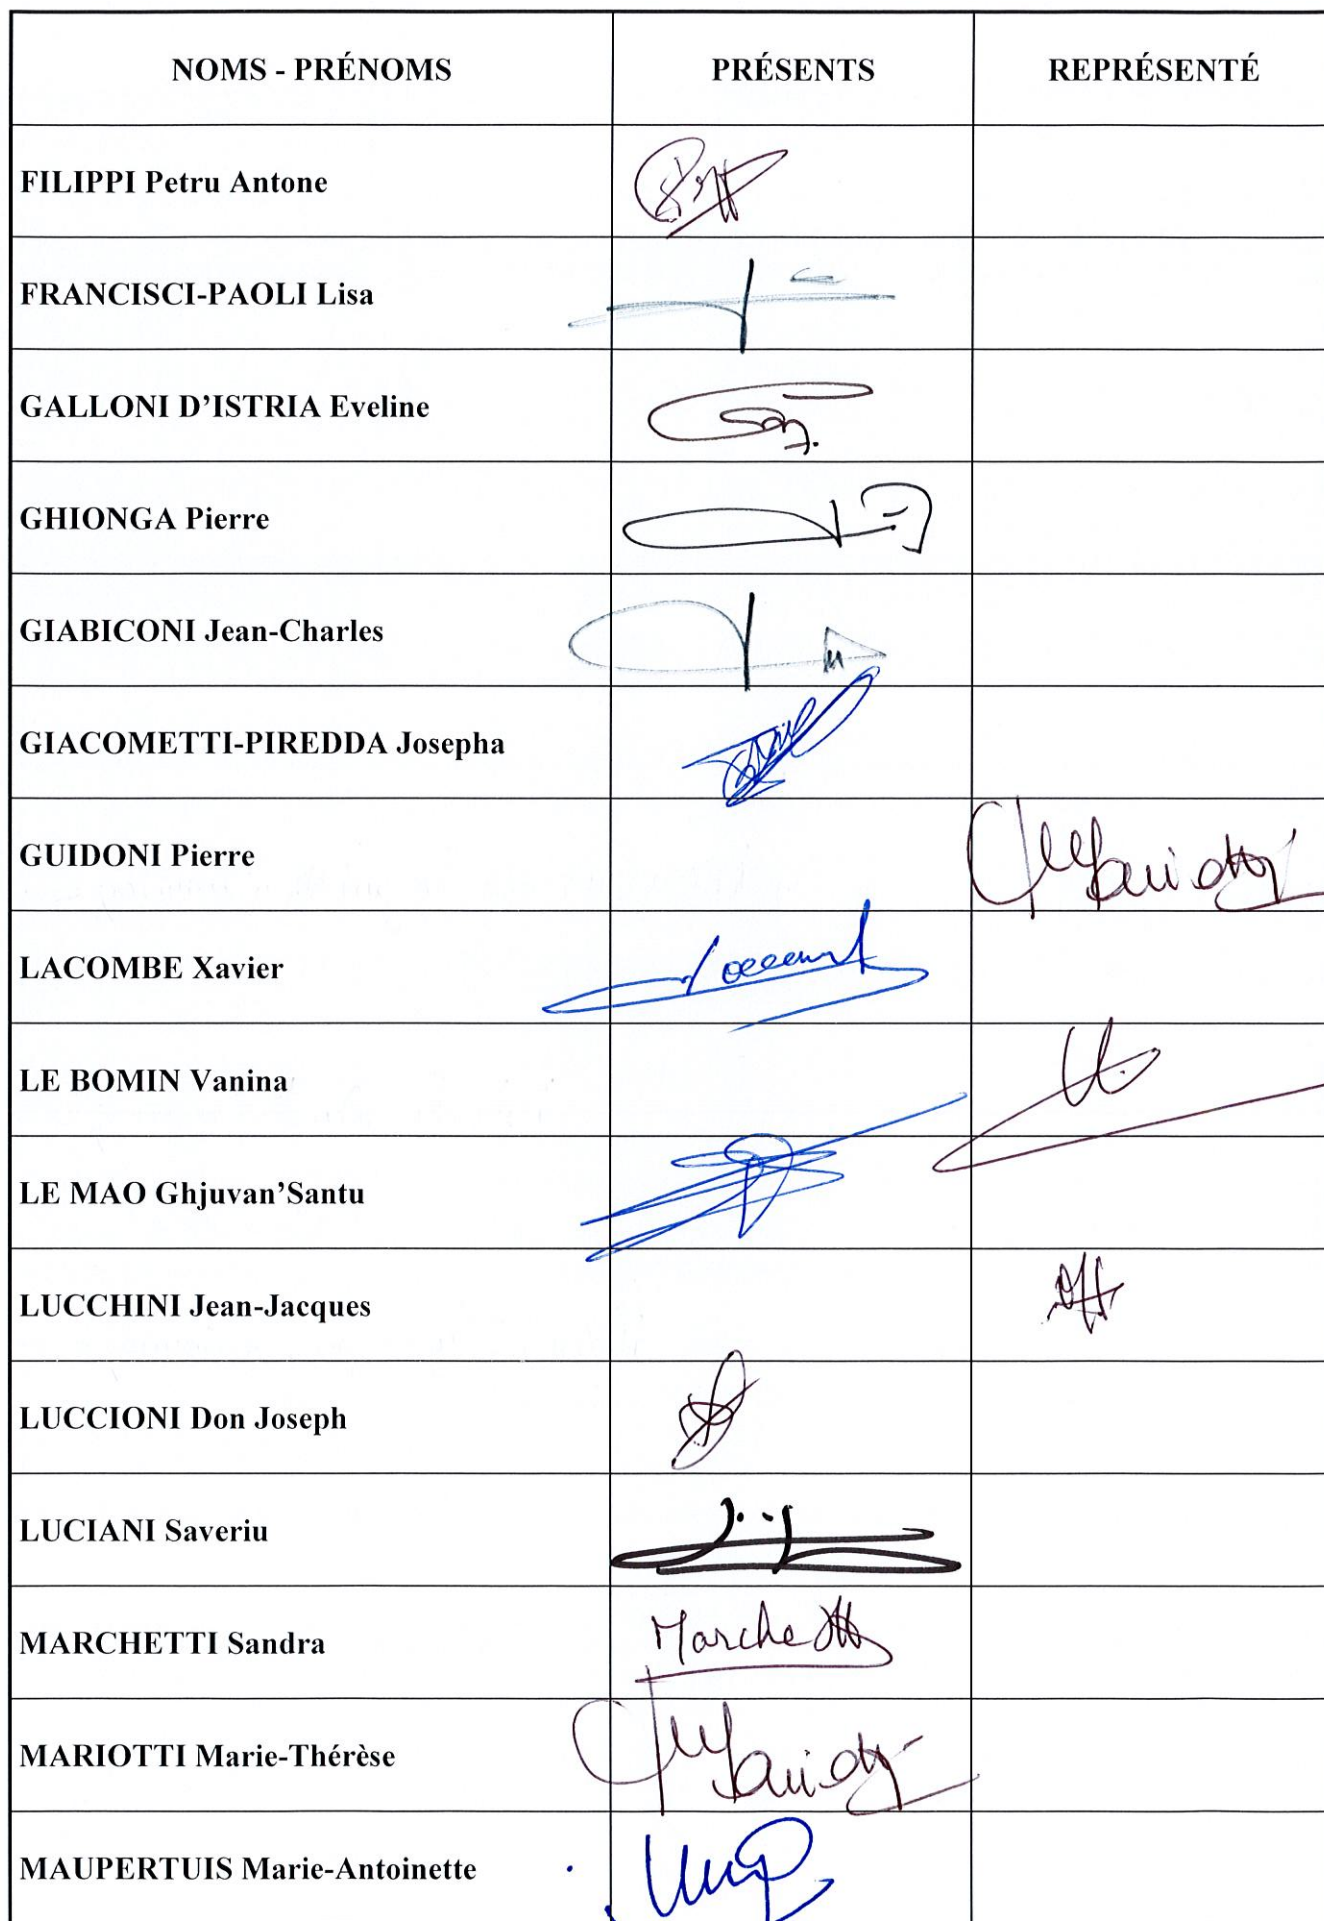 NOMS - PRÉNOMS PRÉSENTS REPRÉSENTÉ
FILIPPI Petru Antone
FRANCISCI-PAOLI Lisa
GALLONI D'ISTRIA Eveline
GHIONGA Pierre
GIABICONI Jean-Charles
GIACOMETTI-PIREDDA Josepha
GUIDONI Pierre
LACOMBE Xavier
LE BOMIN Vanina
LE MAO Ghjuvan'Santu
LUCCHINI Jean-Jacques
LUCCIONI Don Joseph
LUCIANI Saveriu
MARCHETTI Sandra Marchetti
MARIOTTI Marie-Thérèse
MAUPERTUIS Marie-Antoinette